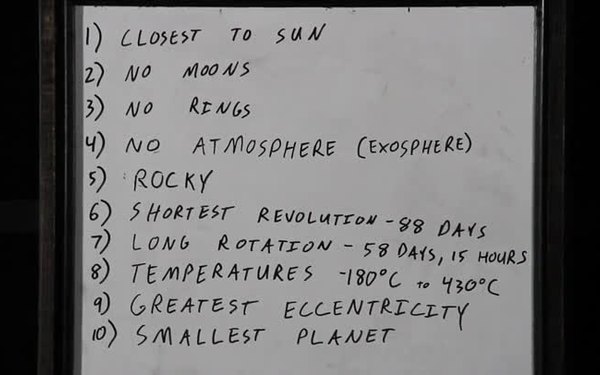 1) CLOSEST TO SUN
2) NO MOONS
3) NO RINGS
4) NO ATMOSPHERE (EXOSPHERE)
5) ROCKY
6) SHORTEST REVOLUTION - 88 DAYS
7) LONG ROTATION - 58 DAYS, 15 HOURS
8) TEMPERATURES -180°C to 430°C
9) GREATEST ECCENTRICITY
10) SMALLEST PLANET